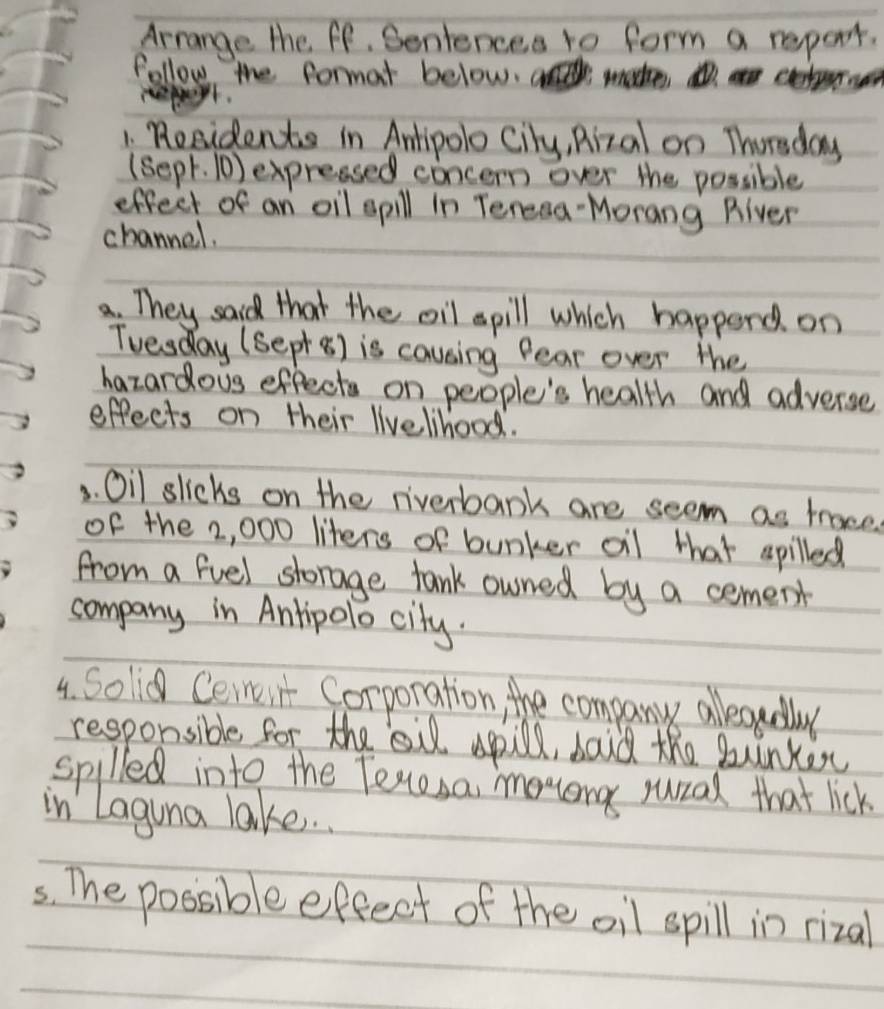 Arrange the ff. Sentences to form a report.
Follow the format below.
1. Residents in Antipolo City, Rizal on Thursday
(Sept. 10) expressed concern over the possible
effect of an oil spill in Teresa-Morang River
channel.
2. They said that the oil spill which happend on
Tuesday (Sept 8) is causing fear over the
hazardous effects on people's health and adverse
effects on their livelihood.
3. Oil slicks on the riverbank are seem as traces
of the 2,000 liters of bunker oil that spilled
from a fuel storage tank owned by a cement
company in Antipolo city.
4. Solid Cement Corporation, the company allegedly
responsible for the oil spill, said the bunker
spilled into the Teresa, morong ruzal that lick
in Laguna lake..
5. The possible effect of the oil spill in rizal